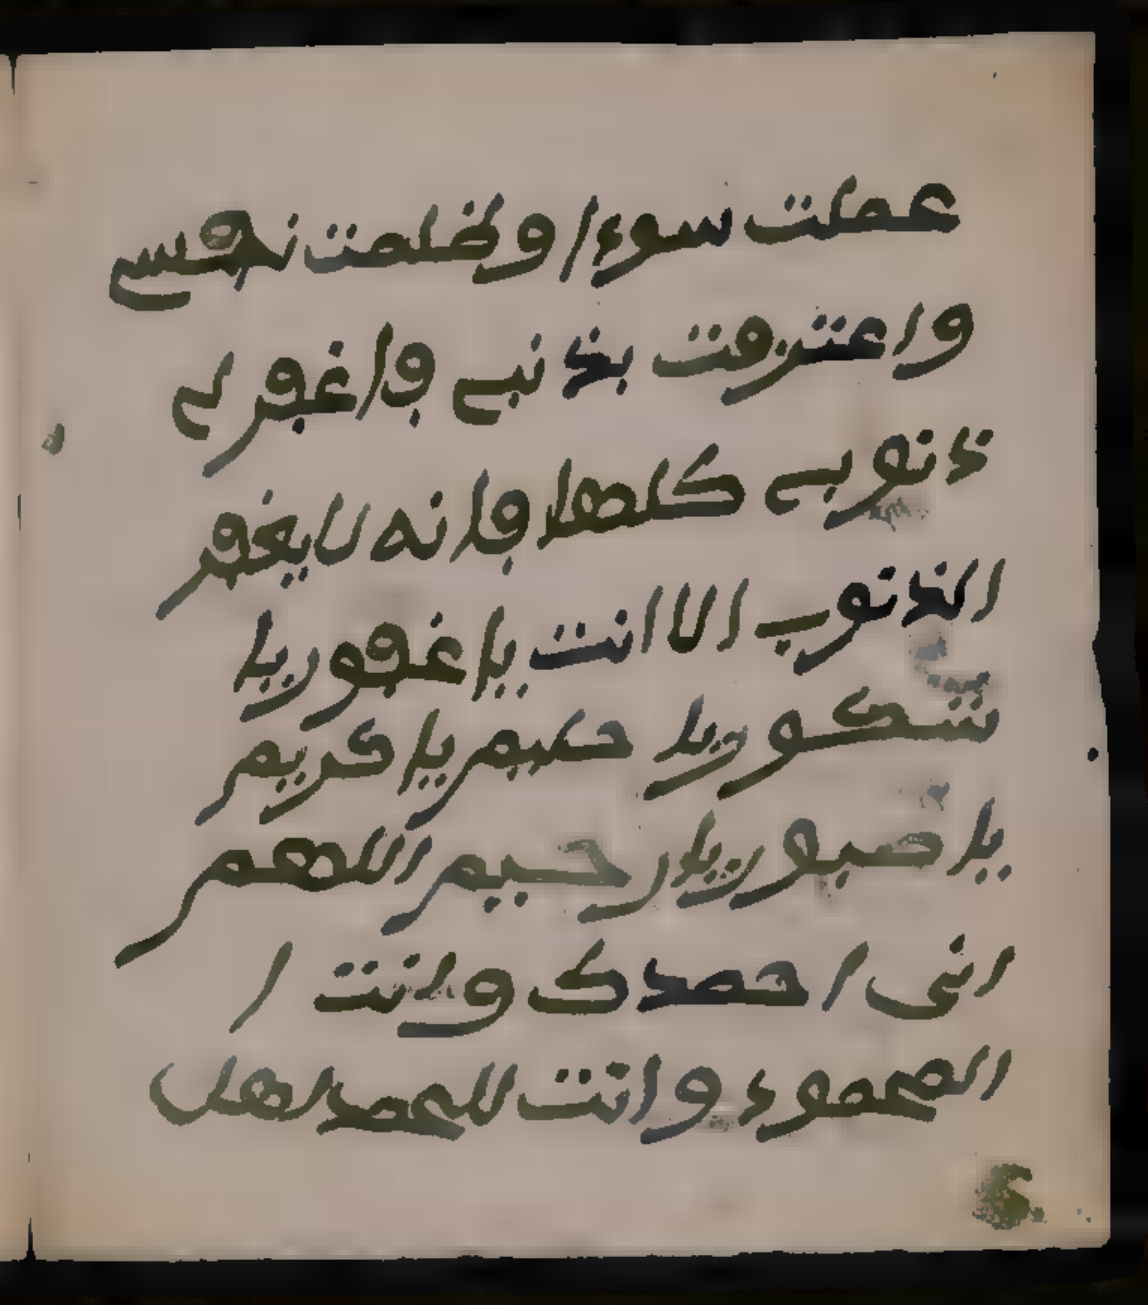 عملت سوءا وظلمت نفسي
واعترفت بذنبي فاغفر لي
ذنوبي كلها فانه لا يغفر
الذنوب الا انت يا غفور يا
شكور يا حليم يا كريم
يا صبور يا رحيم اللهم
اني احمدك وانت ا
المحمود وانت للحمد اهل